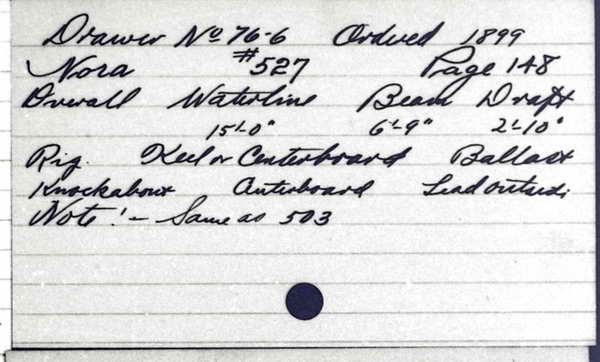 Drawer No 76-6 Ordered 1899
Nora #527 Page 148
Overall Waterline Beam Draft
15'-0" 6'-9" 2'-10"
Rig. Keel or Centerboard Ballast
Knockabout Centerboard Lead outside
Note! - Same as 503